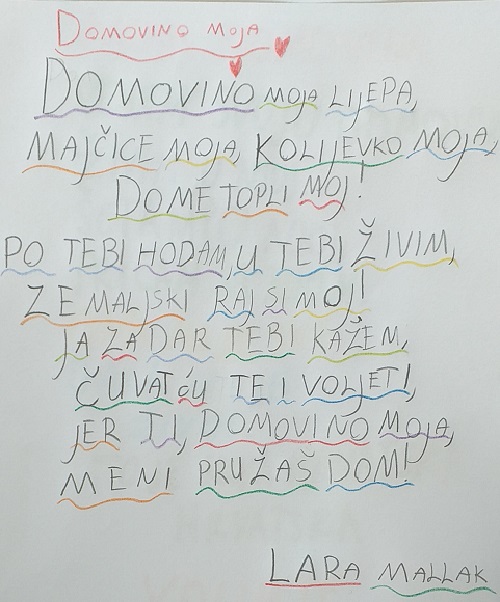 DOMOVINO MOJA
DOMOVINO MOJA LIJEPA,
MAJČICE MOJA, KOLIJEVKO MOJA,
DOME TOPLI MOJ!
PO TEBI HODAM, U TEBI ŽIVIM,
ZEMALJSKI RAJ SI MOJ!
JA ZA DAR TEBI KAŽEM,
ČUVAT ĆU TE I VOLJETI,
JER TI, DOMOVINO MOJA,
MENI PRUŽAŠ DOM!
LARA MALLAK